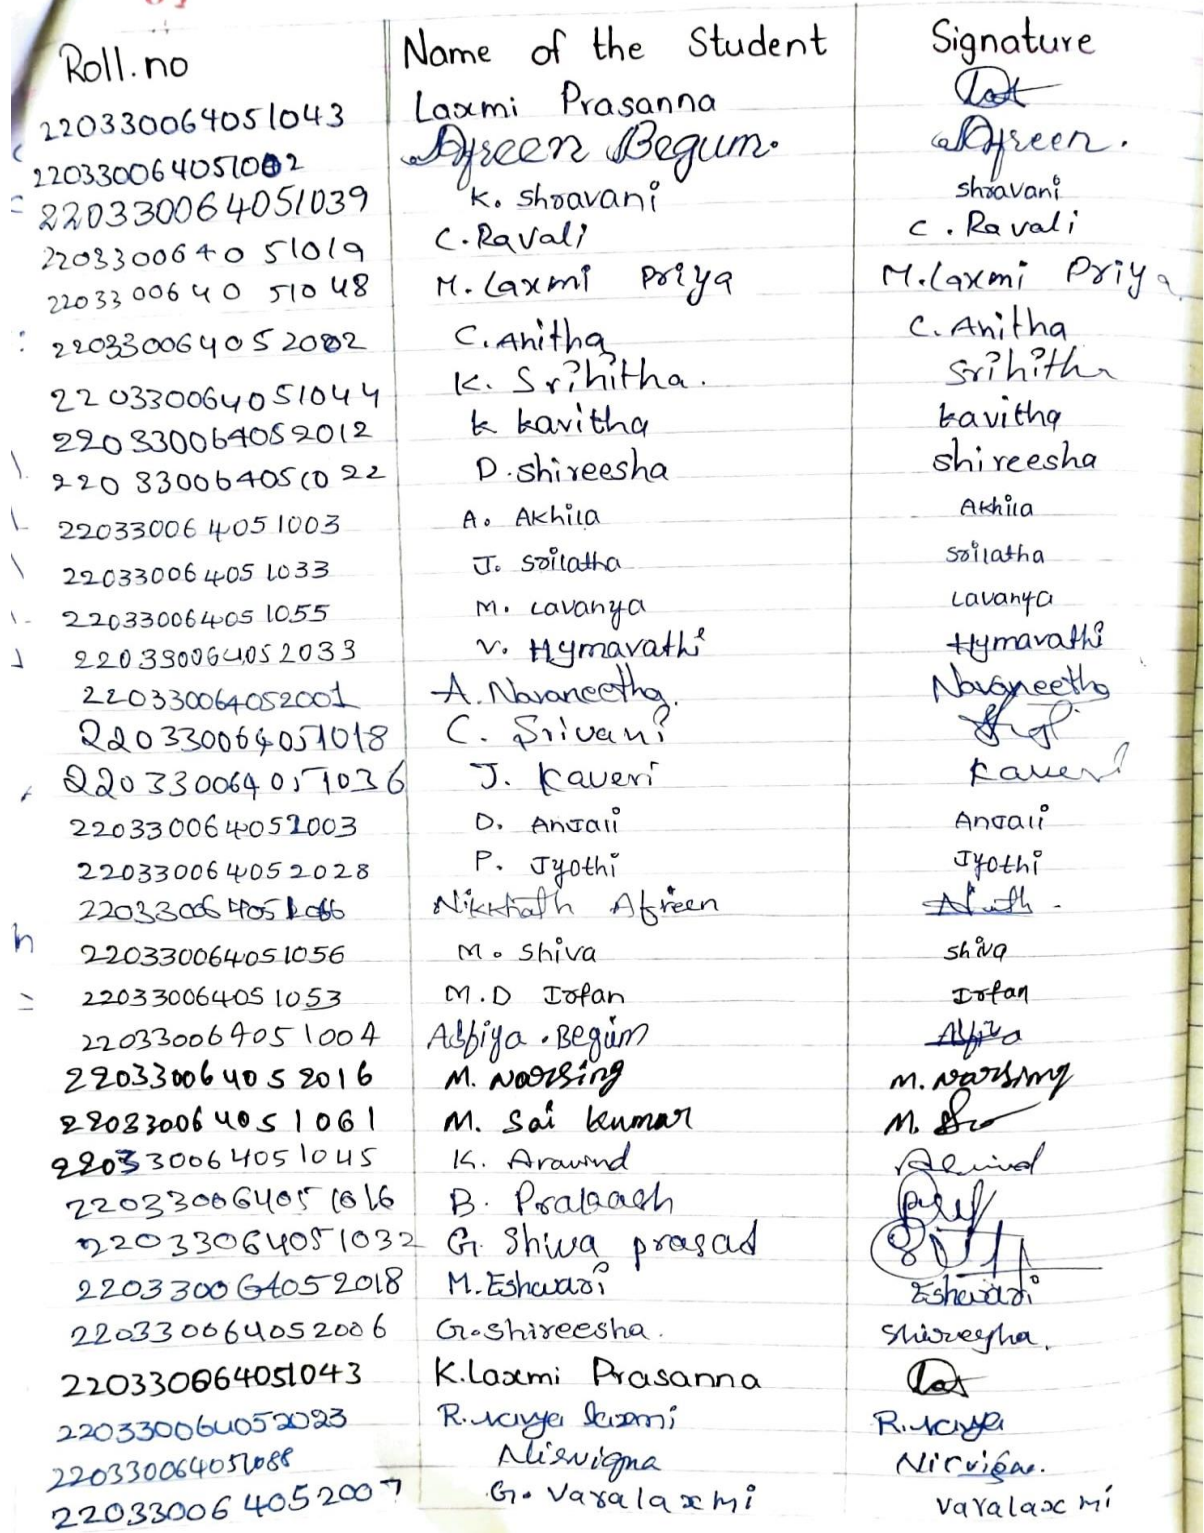 Roll.no Name of the Student Signature
220330064051043 Laxmi Prasanna
220330064051002 Afreen Begum. Afreen.
220330064051039 K. Shravani Shravani
220330064051019 C.Ravali C. Ravali
220330064051048 M. Laxmi Priya M. Laxmi Priya
220330064052002 C. Anitha C. Anitha
220330064051044 K. Srihitha. Srihitha
220330064052012 K Kavitha Kavitha
220330064051022 D. Shireesha Shireesha
220330064051003 A. Akhila Akhila
220330064051033 J. Srilatha Srilatha
220330064051055 M. Lavanya Lavanya
220330064052033 V. Hymavathi Hymavathi
220330064052001 A. Navaneetha. Navaneetha
220330064051018 C. Srivani
220330064051036 J. Kaveri Kaveri
220330064052003 D. Anjali Anjali
220330064052028 P. Jyothi Jyothi
Nikkhath Afreen
220330064051056 M. Shiva Shiva
220330064051053 M.D Irfan Irfan
220330064051004 Asfiya. Begum Asfiya
220330064052016 M. Narsing M. Narsing
220330064051061 M. Sai Kumar M.
220330064051045 K. Aravind Aravind
220330064051016 B. Prakash
22033064051032 G. Shiva prasad
220330064052018 M. Eshwari Eshwari
220330064052006 G. Shireesha. Shireesha.
220330064051043 K.Laxmi Prasanna
220330064052023 R. navya laxmi R. navya
Nirvigna Nirvigna.
220330064052007 G. Varalaxmi Varalaxmi